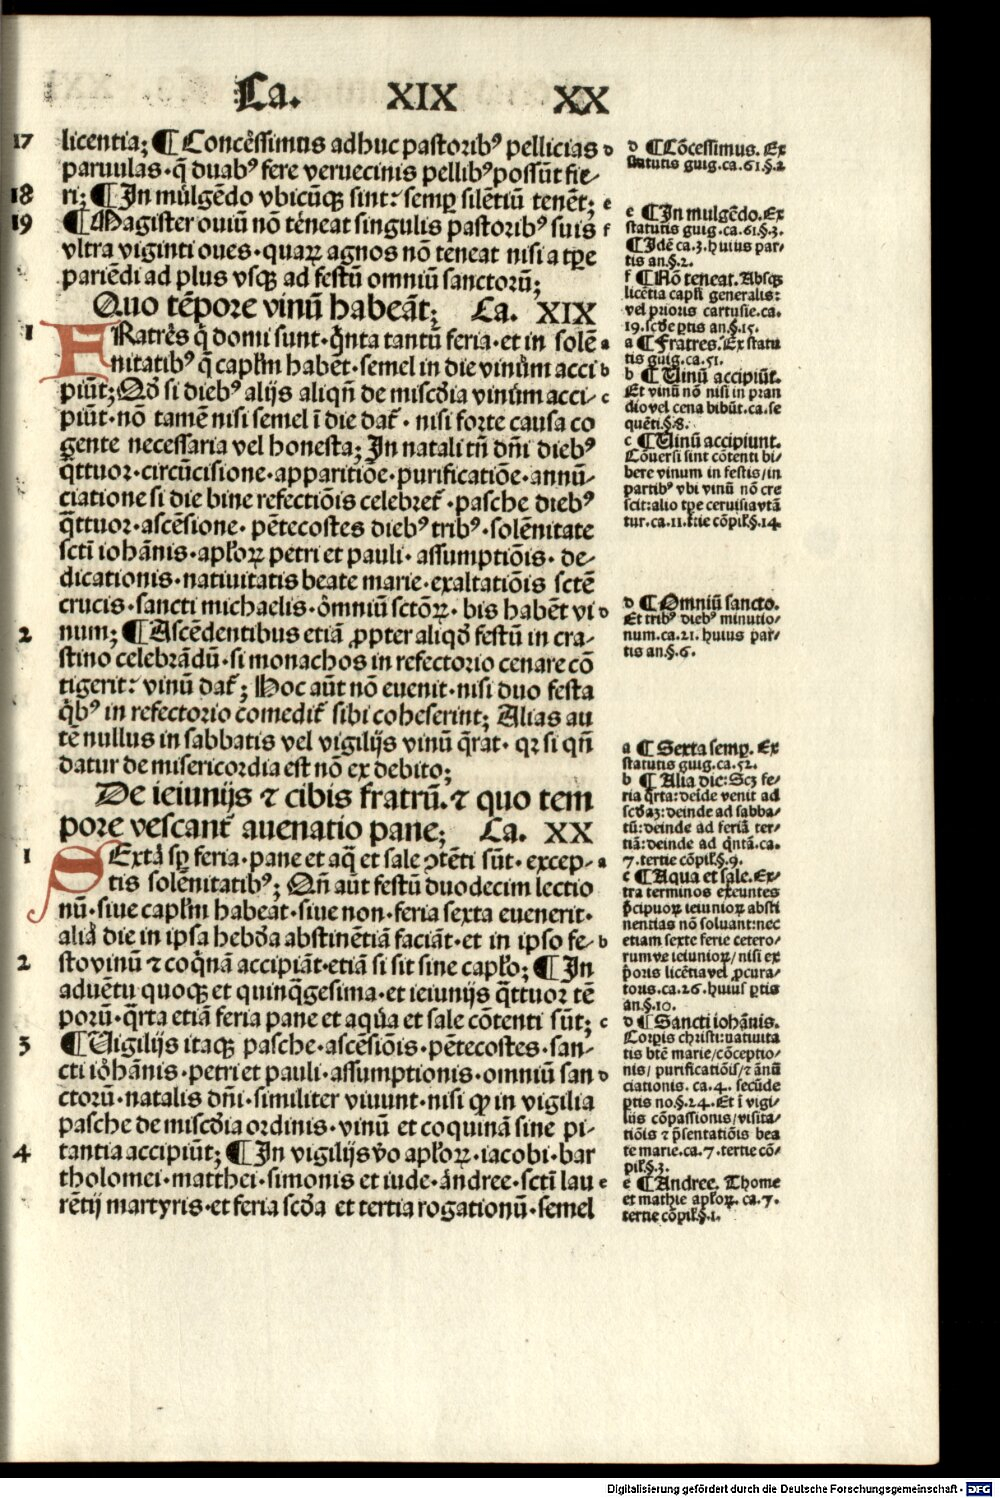 Ca. XIX XX
17 licentia; ¶ Concessimus adhuc pastoribꝰ pellicias d
paruulas·q̄ duabꝰ fere veruecinis pellibꝰ possūt fie-
18 ri; ¶ In mulgēdo vbicūqꝫ sint: semꝑ silētiū tenēt; e
19 ¶ Magister ouiū nō teneat singulis pastoribꝰ suis f
vltra viginti oues·quaꝝ agnos nō teneat nisi a tꝑe
pariēdi ad plus vsqꝫ ad festū omniū sanctorū;
Quo tēpore vinū habeāt; Ca. XIX
1 FRatres q̇ domi sunt·q̇nta tantū feria·et in solē a
nitatibꝰ q̄ capl'm habēt·semel in die vinum acci b
piūt; Qd̓ si diebꝰ alijs aliqn̄ de misc̓dia vinum acci- c
piūt·nō tamē nisi semel ī die dat᷑·nisi forte causa co
gente necessaria vel honesta; In natali tn̄ dn̄i diebꝰ
q̄ttuor·circūcisione·apparitiōe·purificatiōe·annū-
ciatione si die bine refectiōis celebret᷑·pasche diebꝰ
q̄ttuor·ascēsione·pētecostes diebꝰ tribꝰ·solēnitate
scti̅ iohānis·apl'oꝝ petri et pauli·assumptiōis·de-
dicationis·natiuitatis beate marie·exaltatiōis sctē
crucis·sancti michaelis·omniū sctōꝝ·bis habēt vi d
2 num; ¶ Ascēdentibus etiā ꝓpter aliqd̓ festū in cra-
stino celebrādū·si monachos in refectorio cenare cō
tigerit: vinū dat᷑; Hoc aūt nō euenit·nisi duo festa
q̇bꝰ in refectorio comedit᷑ sibi coheserint; Alias au
tē nullus in sabbatis vel vigilijs vinū q̄rat·qꝛ si qn̄
datur de misericordia est nō ex debito;
De ieiunijs ⁊ cibis fratrū.⁊ quo tem
pore vescant᷑ auenatio pane; Ca. XX
1 SExta sꝑ feria·pane et aq̄ et sale ↄtēti sūt·excep- a
tis solēnitatibꝰ; Qn̄ aūt festū duodecim lectio
nū·siue capl'm habeāt·siue non·feria sexta euenerit·
alia die in ipsa hebd̓a abstinētiā faciāt·et in ipso fe- b
2 sto vinū ⁊ coq̇nā accipiāt·etiā si sit sine capl'o; ¶ In
aduētu quoqꝫ et quinq̄gesima·et ieiunijs q̄ttuor tē
porū·q̄rta etiā feria pane et aqua et sale cōtenti sūt; c
3 ¶ Uigilijs itaqꝫ pasche·ascēsiōis·pētecostes·san-
cti iohānis·petri et pauli·assumptionis·omniū san d
ctorū·natalis dn̄i·similiter viuunt·nisi ꝙ in vigilia
pasche de misc̓dia ordinis·vinū et coquinā sine pi-
4 tantia accipiūt; ¶ In vigilijs v̓o apl'oꝝ·iacobi·bar
tholomei·matthei·simonis et iude·andree·scti̅ lau e
rētij martyris·et feria sc̓da et tertia rogationū·semel
d ¶ Cōcessimus. Ex
statutis guig.ca.61.§.2
e ¶ In mulgēdo. Ex
statutis guig.ca.61.§.3.
¶ Idē ca.3.huius par-
tis an.§.2.
f ¶ Nō teneat. Absqꝫ
licētia capl'i generalis:
vel prioris cartusie.ca.
19.scd̓e ꝑtis an.§.15.
a ¶ Fratres. Ex statu
tis guig.ca.51.
b ¶ Uinū accipiūt.
Et vinū nō nisi in pran
dio vel cena bibūt.ca.se
quēti.§.8.
c ¶ Uinū accipiunt.
Cōuersi sint cōtenti bi-
bere vinum in festis/in
partibꝰ vbi vinū nō cre
scit: alio tꝑe ceruisia vtā
tur.ca.11.t̓tie cōpil'.§.14.
d ¶ Omniū sancto.
Et tribꝰ diebꝰ minutio-
num.ca.21.huius par-
tis an.§.6.
a ¶ Sexta semꝑ. Ex
statutis guig.ca.52.
b ¶ Alia die: Scꝫ fe-
ria q̄rta: deīde venit ad
scd̓aꝫ: deinde ad sabba-
tū: deinde ad feriā ter-
tiā: deinde ad q̇ntā.ca.
7.tertie cōpil'.§.9.
c ¶ Aqua et sale. Ex-
tra terminos exeuntes
p̄cipuoꝝ ieiunioꝝ absti
nentias nō soluant: nec
etiam sexte ferie cetero-
rumve ieiunioꝝ/nisi ex
p̄oris licētia vel ꝓcura-
toris.ca.26.huius ꝑtis
an.§.10.
d ¶ Sancti iohānis.
Corꝑis christi: natiuita
tis btē marie/cōceptio-
nis/purificatiōis/⁊ ānū
ciationis.ca.4.secūde
ꝑtis no.§.24. Et ī vigi-
liis cōpassionis/visita-
tiōis ⁊ p̄sentatiōis bea
te marie.ca.7.tertie cō-
pil'.§.3.
e ¶ Andree. Thome
et mathie apl'oꝝ. ca.7.
tertie cōpil'.§.1.
Digitalisierung gefördert durch die Deutsche Forschungsgemeinschaft - DFG